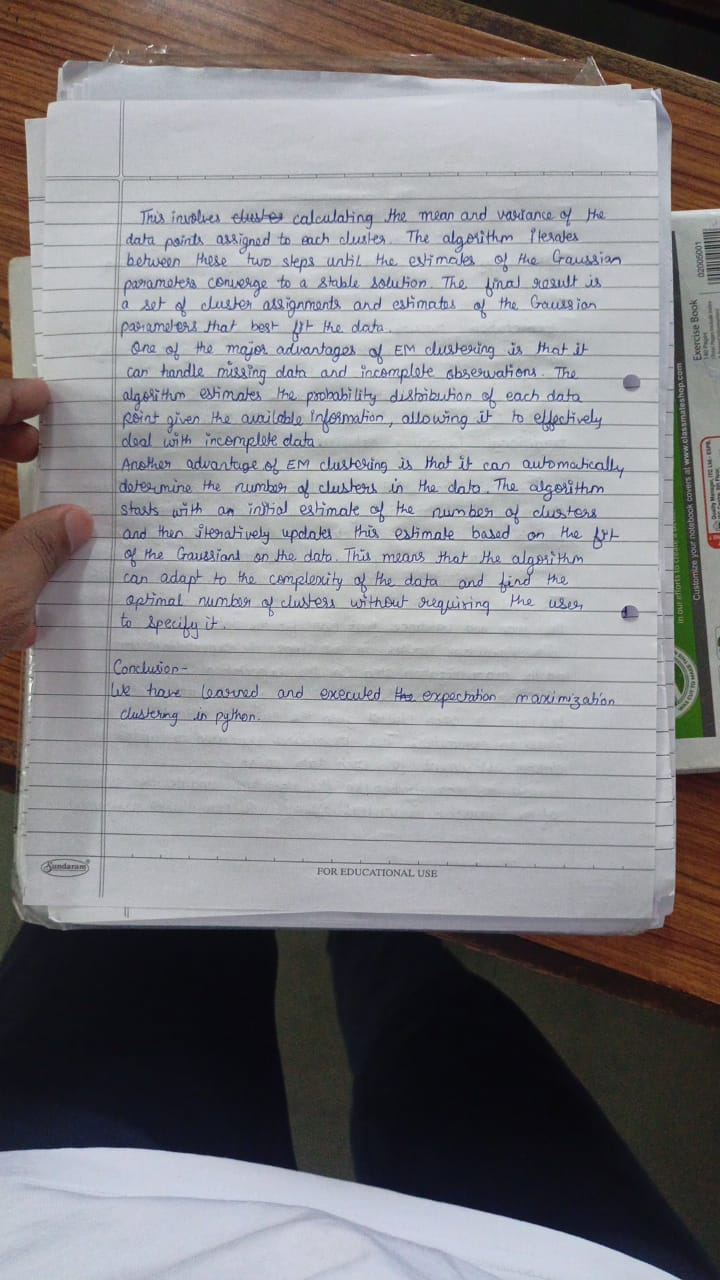 This involves cluste calculating the mean and variance of the
data points assigned to each cluster. The algorithm iterates
between these two steps until the estimates of the Gaussian
parameters converge to a stable solution. The final result is
a set of cluster assignments and estimates of the Gaussian
parameters that best fit the data.
One of the major advantages of EM clustering is that it
can handle missing data and incomplete observations. The
algorithm estimates the probability distribution of each data
point given the available information, allowing it to effectively
deal with incomplete data.
Another advantage of EM clustering is that it can automatically
determine the number of clusters in the data. The algorithm
starts with an initial estimate of the number of clusters
and then iteratively updates this estimate based on the fit
of the Gaussians on the data. This means that the algorithm
can adapt to the complexity of the data and find the
optimal number of clusters without requiring the user
to specify it.
Conclusion-
We have learned and executed the expectation maximization
clustering in python.
Sundaram
FOR EDUCATIONAL USE
02005001
Exercise Book
Customize your notebook covers at www.classmateshop.com
In our efforts to create a